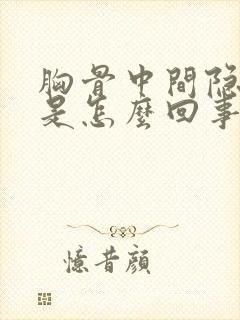 胸骨中間隐
是怎麼回事
憶昔顔